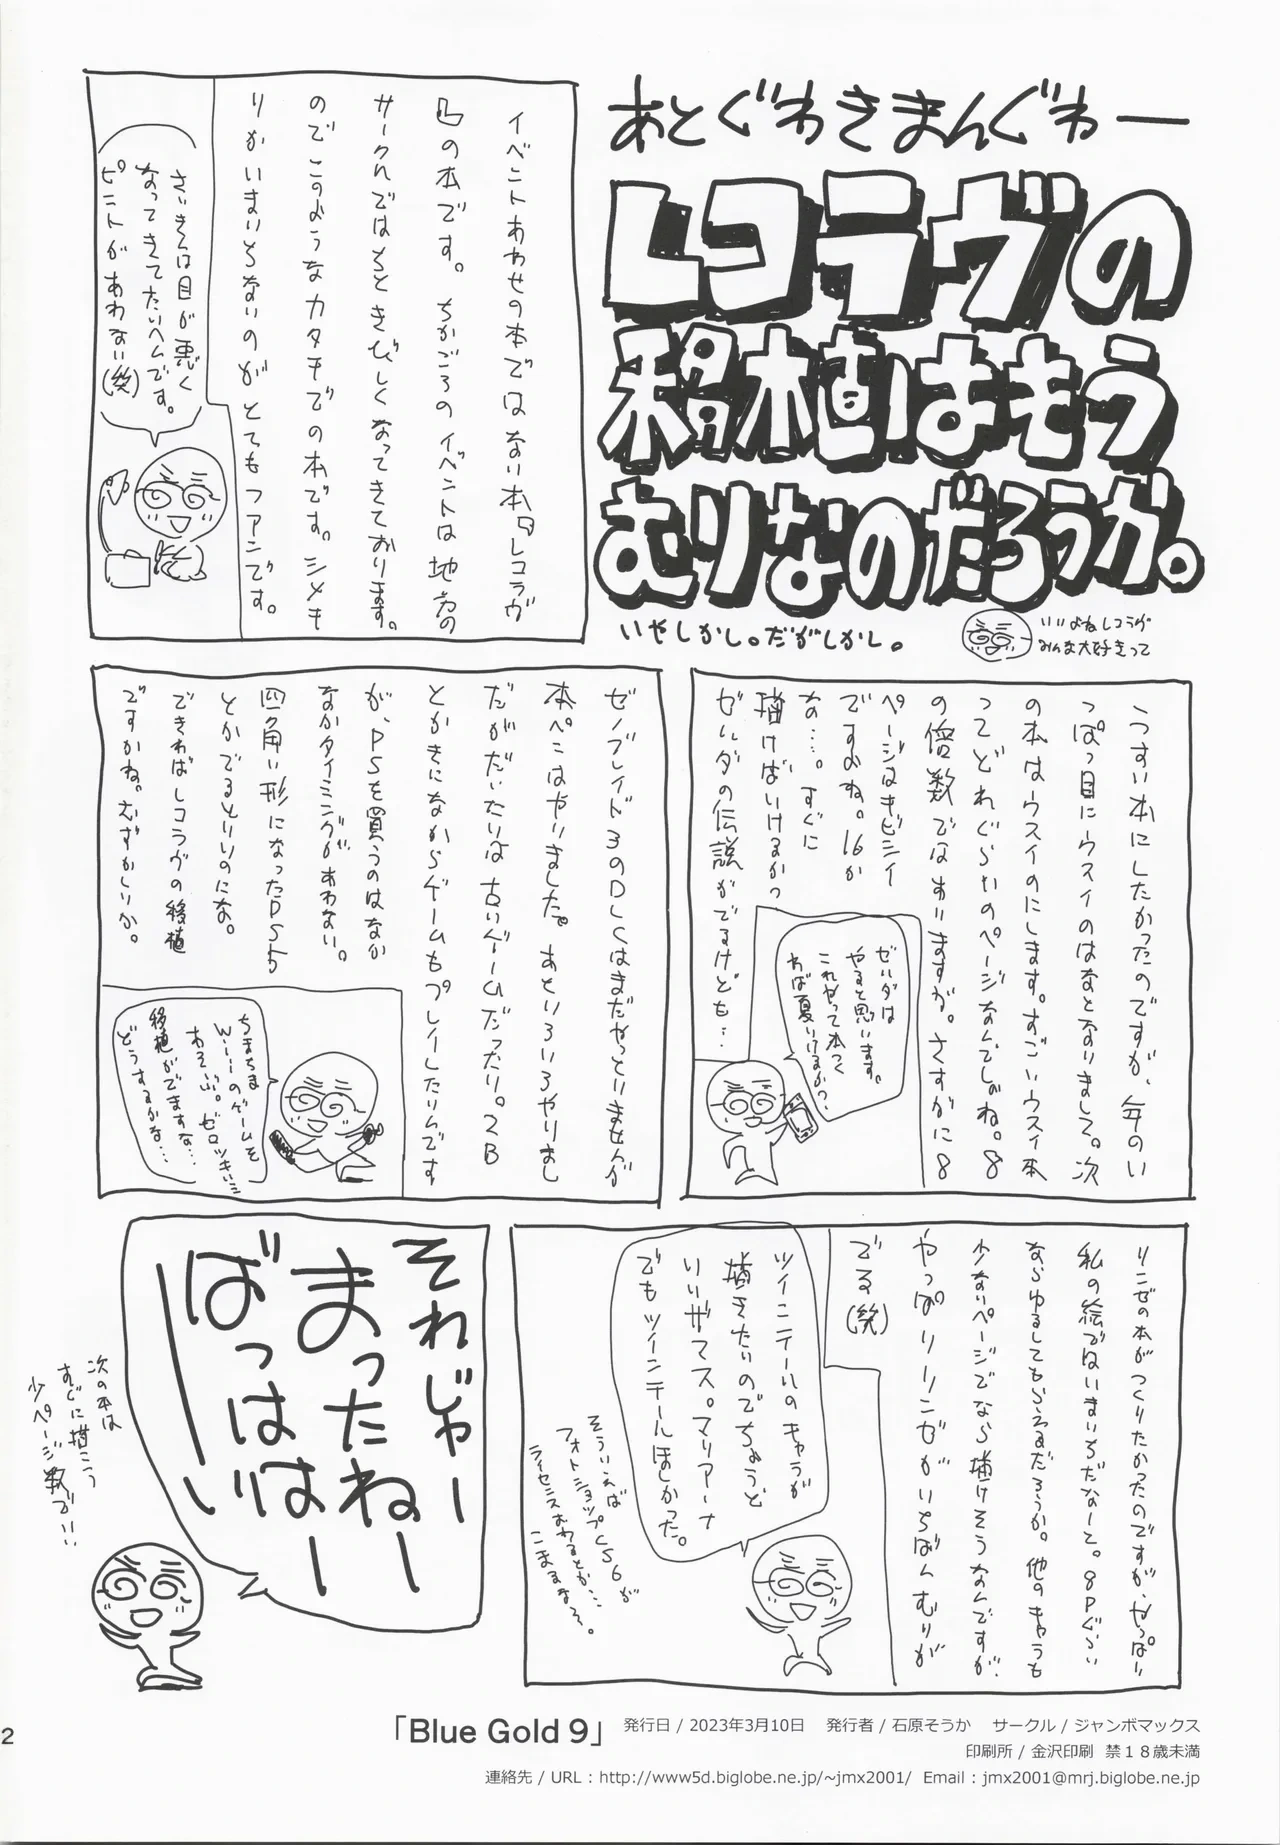 あとぐわきまんぐわー
レコラヴの
移植はもう
むりなのだろうか。
いやしかし。だがしかし。
いいよねレコラヴ
みんな大好きって
イベントあわせの本ではない本日レコラヴ
の本です。ちかごろのイベントは地方の
サークルではちときびしくなってきております。
のでこのようなカタチでの本です。シメキ
りがいまいちないのがとてもフアンです。
さいきんは目が悪く
なってきてたいへんです。
ピントがあわない(笑)
うすい本にしたかったのですが、年のい
っぱつ目にウスイのはなとなりまして。次
の本はウスイのにします。すごいウスイ本
ってどれぐらいのページなんでしょね。8
の倍数ではありますが。さすがに8
ページはキビシイ
ですよね。16か
な…。すぐに
描けばいけるかっ
ゼルダの伝説がでるけども…
ゼルダは
やると思います。
これやって本つく
れば夏いけるかっ。
ゼノブレイド3のDLCはまだやっとりませんが
本ぺこはやりました。あといろいろやりまし
だがだいたいは古いゲームだったり。2B
とかきになからゲームもプレイしたりんです
が、PSを買うのはなか
なかタイミングがあわない。
四角い形になったPS5
とかでるといいのにな。
できればレコラヴの移植
ですかね。むずかしいか。
ちまちま
Wiiのゲームを
あそぶ。ゼロツキハミ
移植がでますな…
どうするかな…
リンゼの本がつくりたかったのですが、やっぱり
私の絵ではいまいちだなーと。8Pぐらい
ならゆるしてもらえるだろうか。他のキャラも
少ないページでなら描けそうなんですが、
やっぱりリンゼがいちばんむりが
でる(笑)
ツインテールのキャラが
描きたいのでちょうど
いいザマス。マリアーナ
でもツインテールほしかった。
そういえば
フォトショップCS6が
ライセンスおわるとか…
こまるなぁ。
それじゃー
まったねー
ばっはは
ーい
次の本は
すぐに描こう
少ページ数でい
2
「Blue Gold 9」 発行日 / 2023年3月10日 発行者 / 石原そうか サークル / ジャンボマックス
印刷所 / 金沢印刷 禁18歳未満
連絡先 / URL : http://www5d.biglobe.ne.jp/~jmx2001/ Email : jmx2001@mrj.biglobe.ne.jp